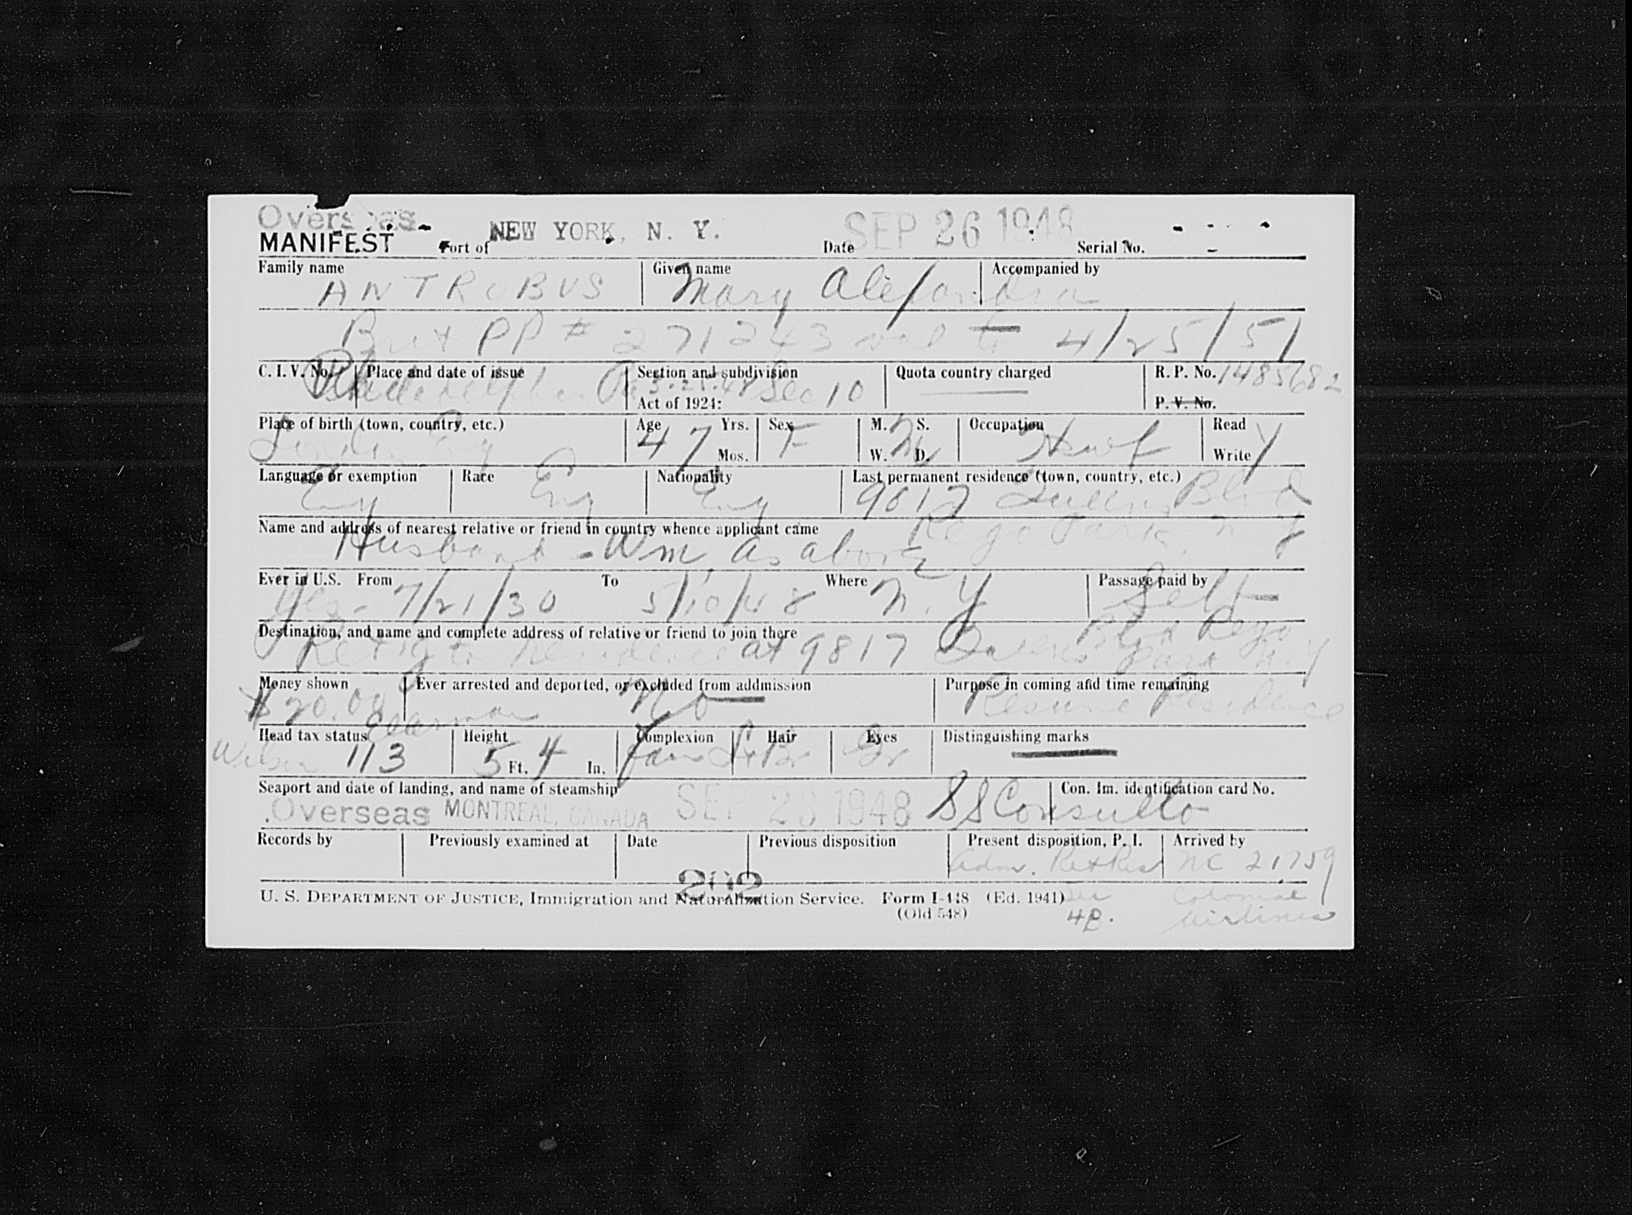 Overseas
MANIFEST Port of NEW YORK, N. Y. Date SEP 26 1948 Serial No.
Family name Given name Accompanied by
ANTROBUS Mary Alexandra
Brit PP # 271243 val to 4/25/51
C. I. V. No. Place and date of issue Section and subdivision Quota country charged R. P. No. 1485682
Philadelphia Pa 3-25-48 Sec 10
Act of 1924: P. V. No.
Place of birth (town, country, etc.) Age Yrs. Sex M. S. Occupation Read
London Eng 47 F M Hswf Y
Mos. W. D. Write
Language or exemption Race Nationality Last permanent residence (town, country, etc.)
Eng Eng Eng 9817 Queens Blvd
Rego Park, N Y
Name and address of nearest relative or friend in country whence applicant came
Husband - Wm, as above
Ever in U.S. From To Where Passage paid by
Yes - 7/21/30 5/10/48 N. Y Self
Destination, and name and complete address of relative or friend to join there
Retg to residence at 9817 Queens Blvd Rego Park N Y
Money shown Ever arrested and deported, or excluded from addmission Purpose in coming and time remaining
$20.00 No Resume Residence
Head tax status Height Complexion Hair Eyes Distinguishing marks
113 5 Ft. 4 In. Fair Lt Br Gr
Seaport and date of landing, and name of steamship Con. Im. identification card No.
Overseas MONTREAL, CANADA SEP 26 1948 SS Consuelo
Records by Previously examined at Date Previous disposition Present disposition, P. I. Arrived by
Adm. Ret Res NC 21759
202
U. S. DEPARTMENT OF JUSTICE, Immigration and Naturalization Service. Form I-448 (Ed. 1941)
(Old 548)
4P. Colonial Airlines